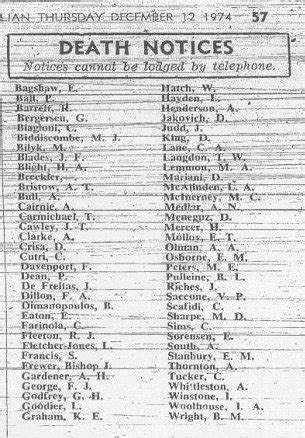 LIAN THURSDAY DECEMBER 12 1974 57
DEATH NOTICES
Notices cannot be lodged by telephone.
Bagshaw, E.
Ball, P.
Barrett, R.
Bergersen, G.
Biagioni, C.
Biddiscombe, M. J.
Bilyk, M.
Blades, J. F.
Blight, H. A.
Breckler,
Bristow, A. T.
Bull, A.
Cairnie, A.
Carmichael, T.
Cawley, J. T.
Clarke, A.
Crisa, D.
Cutri, C.
Davenport, F.
Dean, P.
De Freitas, J.
Dillon, F. A.
Dimanopoulos, B.
Eaton, E.
Farinola, C.
Fleeton, R. J.
Fletcher-Jones, L.
Francis, S.
Frewer, Bishop J.
Gardener, A. H.
George, F. J.
Godfrey, G. H.
Goodier, L.
Graham, K. E.
Hatch, W.
Hayden, L.
Henderson, A.
Jakovich, D.
Judd, J.
King, D.
Lane, C. A.
Langdon, T. W.
Lemmon, M. A.
Mariani, D.
McAlinden, L. A.
McInerney, M. C.
Medlar, A. N.
Meneguz, D.
Mercer, H.
Molloy, E. T.
Olman, A. A.
Osborne, E. M.
Peters, M. E.
Pulleine, B. L.
Riches, J.
Saccone, V. P.
Scafidi, C.
Sharpe, M. D.
Sims, C.
Sorensen, E.
South, A.
Stanbury, E. M.
Thornton, A.
Tucker, C.
Whittleston, A.
Winstone, I.
Woolhouse, I. A.
Wright, B. M.